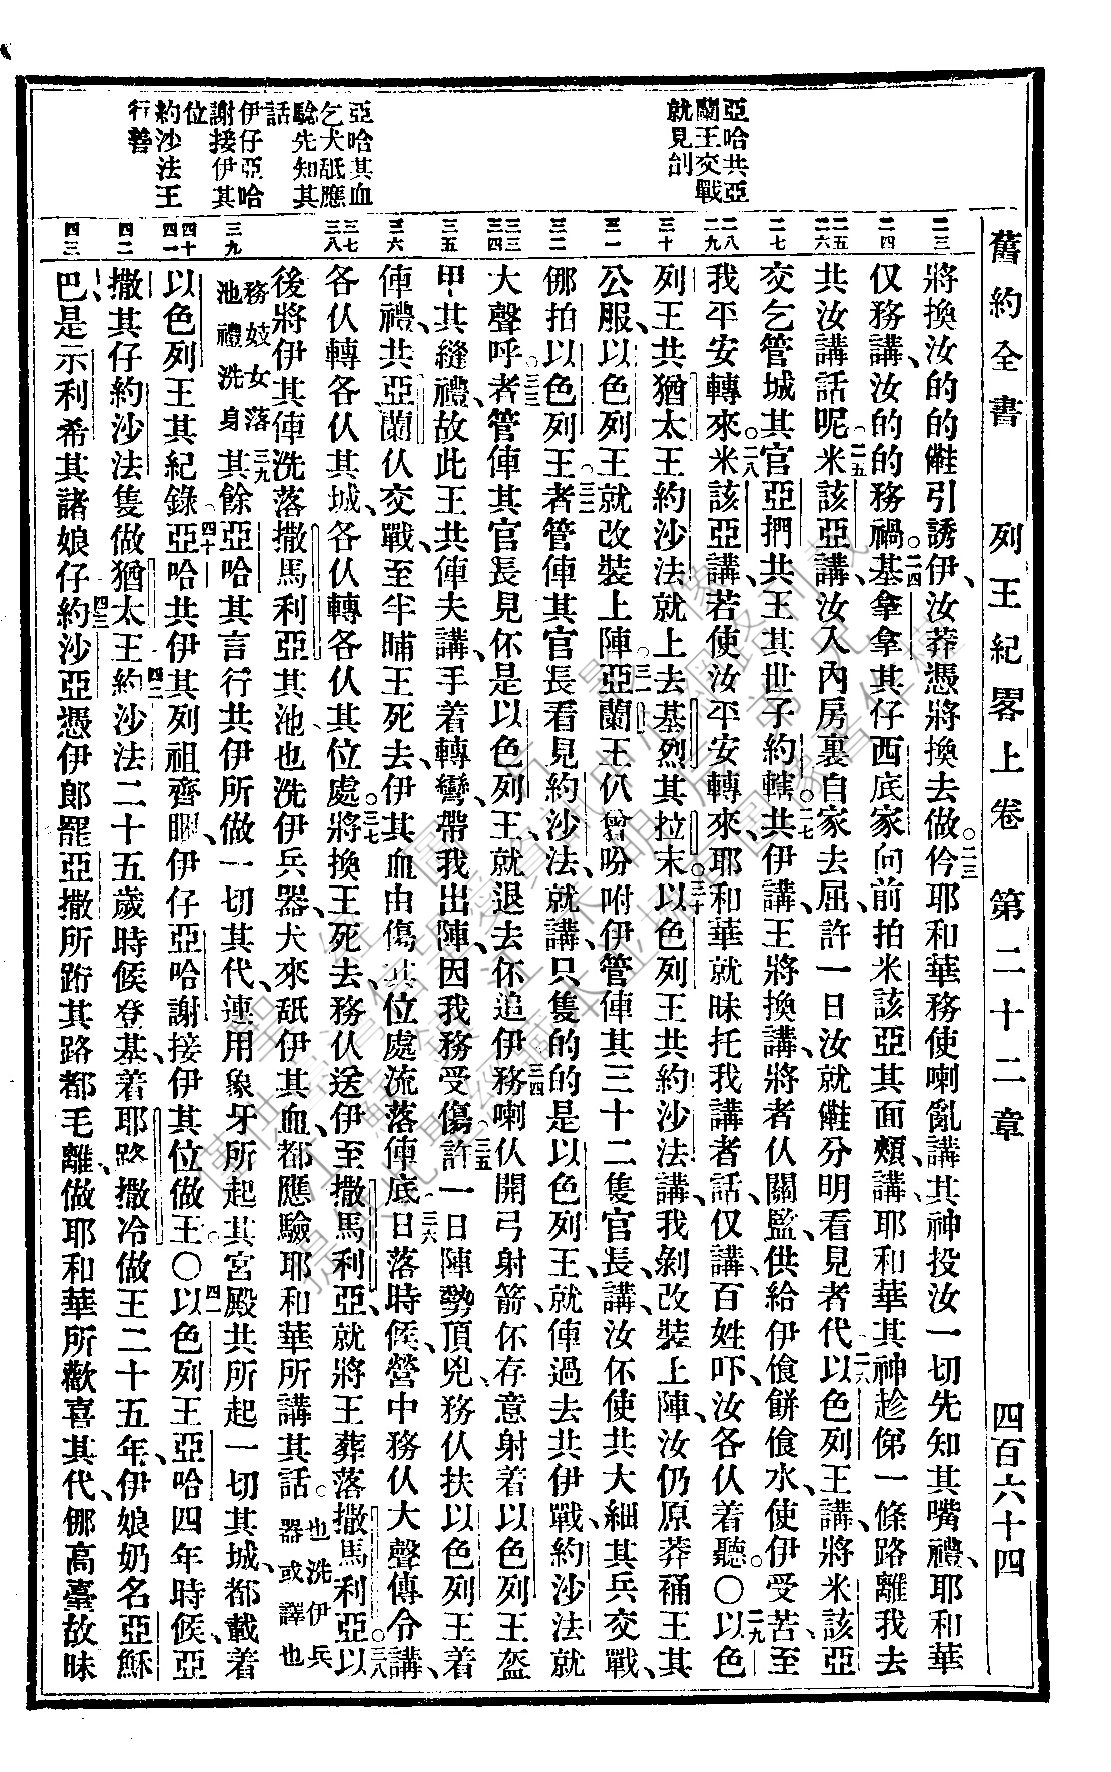 舊約全書 列王紀畧上卷 第二十二章 四百六十四
亞哈共亞
蘭王交戰
就見刣
亞哈其血
乞犬舐應
驗先知其
話
伊仔亞哈
謝接伊其
位
約沙法王
行善
二三 二四 二五 二六 二七 二八 二九 三十 三一 三二 三三 三四 三五 三六 三七 三八 三九 四十 四一 四二 四三
將換汝的的𣍐引誘伊、汝莽憑將換去做。二三仱耶和華務使喇亂講其神投汝一切先知其嘴禮、耶和華
仅務講、汝的的務禍。二四基拿拿其仔西底家向前拍米該亞其面頰、講、耶和華其神趁俤一條路離我去
共汝講話呢。二五米該亞講、汝入內房裏白家去屈、許一日汝就𣍐分明看見者代。二六以色列王講、將米該亞
交乞管城其官亞捫共王其世子約轄。二七共伊講、王將換講、將者仈關監、供給伊飧餅飧水、使伊受苦、至
我平安轉來。二八米該亞講、若使汝平安轉來、耶和華就昧托我講者話、仅講、百姓吓、汝各仈着聽。〇二九以色
列王共猶太王約沙法就上去基烈其拉末。三十以色列王共約沙法講、我剝改裝上陣、汝仍原莽䘼王其
公服、以色列王就改裝上陣。三一亞蘭王仈曾吩咐伊管俥其三十二隻官長、講、汝伓使共大細其兵交戰、
㑚拍以色列王。三二者管俥其官長看見約沙法、就講、只隻的的是以色列王、就俥過去共伊戰、約沙法就
大聲呼。三三者管俥其官長見伓是以色列王、就退去伓追伊。三四務喇仈開弓射箭、伓存意射着以色列王盔
甲其縫禮、故此王共俥夫講、手着轉彎、帶我出陣、因我務受傷。三五許一日陣勢頂兇、務仈扶以色列王着
俥禮、共亞蘭仈交戰、至半晡王死去、伊其血由傷其位處流落俥底。三六日落時候、營中務仈大聲傳令講、
各仈轉各仈其城、各仈轉各仈其位處。三七將換王死去、務仈送伊至撒馬利亞、就將王葬落撒馬利亞。〇三八以
後將伊其俥洗落撒馬利亞其池、也洗伊兵器、犬來舐伊其血、都應驗耶和華所講其話。也洗伊兵器或譯也
務妓女落池禮洗身三九其餘亞哈其言行共伊所做一切其代、連用象牙所起其宮殿共所起一切其城、都載着
以色列王其紀錄。四十亞哈共伊其列祖齊睏、伊仔亞哈謝接伊其位做王。〇四一以色列王亞哈四年時候、亞
撒其仔約沙法隻做猶太王。四二約沙法二十五歲時候登基、着耶路撒冷做王二十五年、伊娘奶名亞穌
巴、是示利希其諸娘仔。四三約沙亞憑伊郎罷亞撒所跡其路都毛離、做耶和華所歡喜其代、㑚高臺故昧